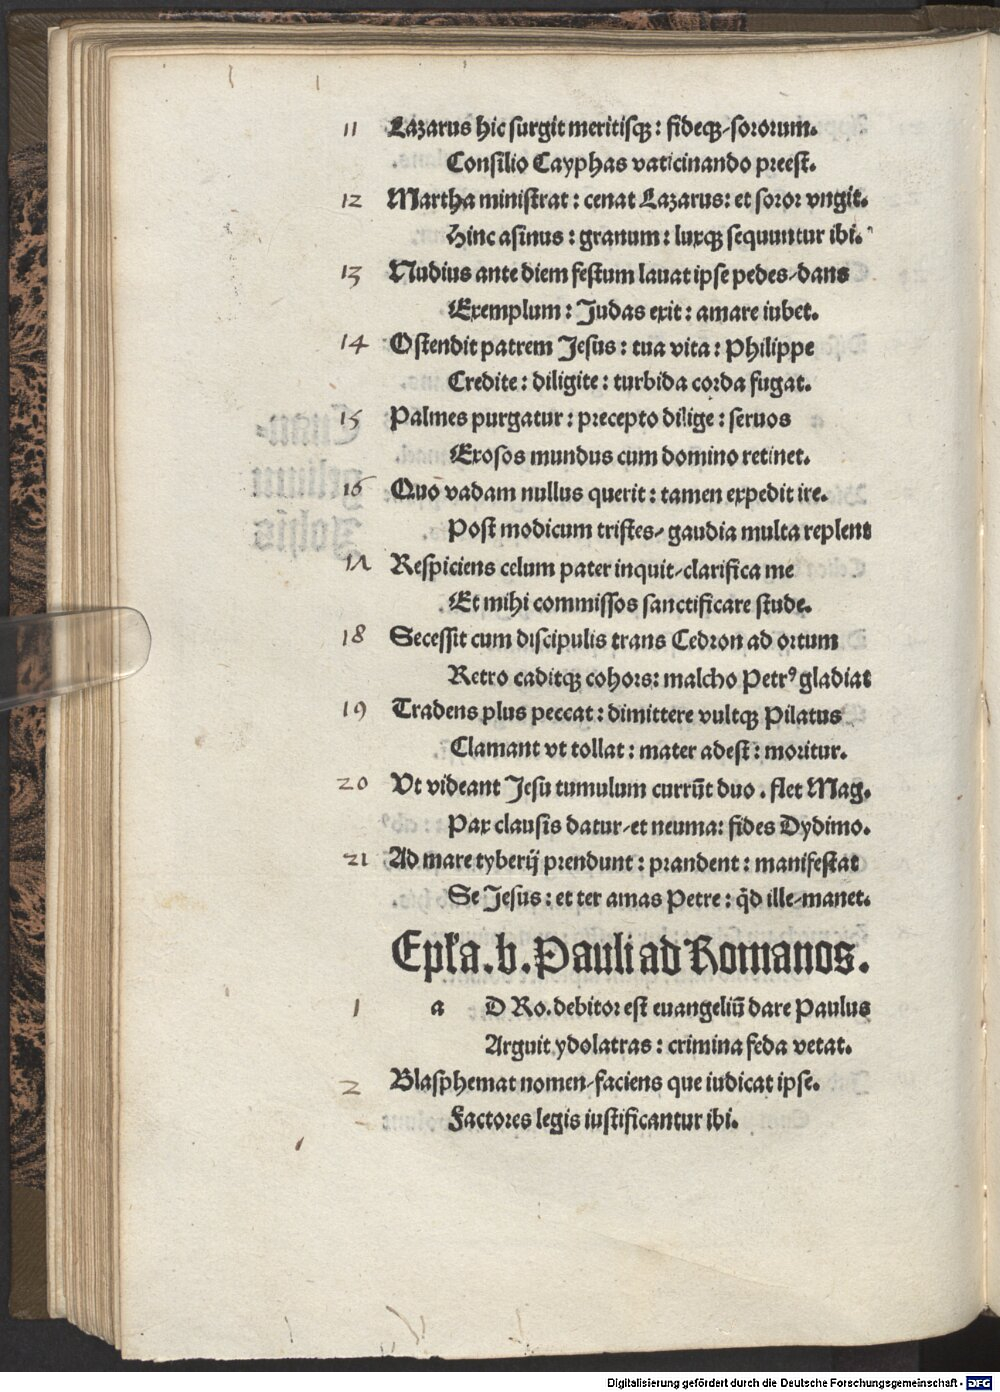 11 Lazarus hic surgit meritisqꝫ : fideqꝫ-sororum.
Consilio Cayphas vaticinando preest.
12 Martha ministrat : cenat Lazarus: et soror vngit.
Hinc asinus : granum : luxqꝫ sequuntur ibi.
13 Nudius ante diem festum lauat ipse pedes-dans
Exemplum : Judas exit : amare iubet.
14 Ostendit patrem Jesus : tua vita : Philippe
Credite : diligite : turbida corda fugat.
15 Palmes purgatur : precepto dilige : seruos
Exosos mundus cum domino retinet.
16 Quo vadam nullus querit : tamen expedit ire.
Post modicum tristes- gaudia multa replent
17 Respiciens celum pater inquit-clarifica me
Et mihi commissos sanctificare stude.
18 Secessit cum discipulis trans Cedron ad ortum
Retro caditqꝫ cohors: malcho Petrꝰ gladiat
19 Tradens plus peccat : dimittere vultqꝫ Pilatus
Clamant vt tollat : mater adest : moritur.
20 Vt videant Jesu tumulum currūt duo . flet Mag.
Pax clausis datur-et neuma: fides Dydimo.
21 Ad mare tyberij prendunt : prandent : manifestat
Se Jesus : et ter amas Petre : qd̄ ille-manet.
Epl'a. b. Pauli ad Romanos.
1 a D Ro. debitor est euangeliū dare Paulus
Arguit ydolatras : crimina feda vetat.
2 Blasphemat nomen-faciens que iudicat ipse.
Factores legis iustificantur ibi.
Digitalisierung gefördert durch die Deutsche Forschungsgemeinschaft - DFG